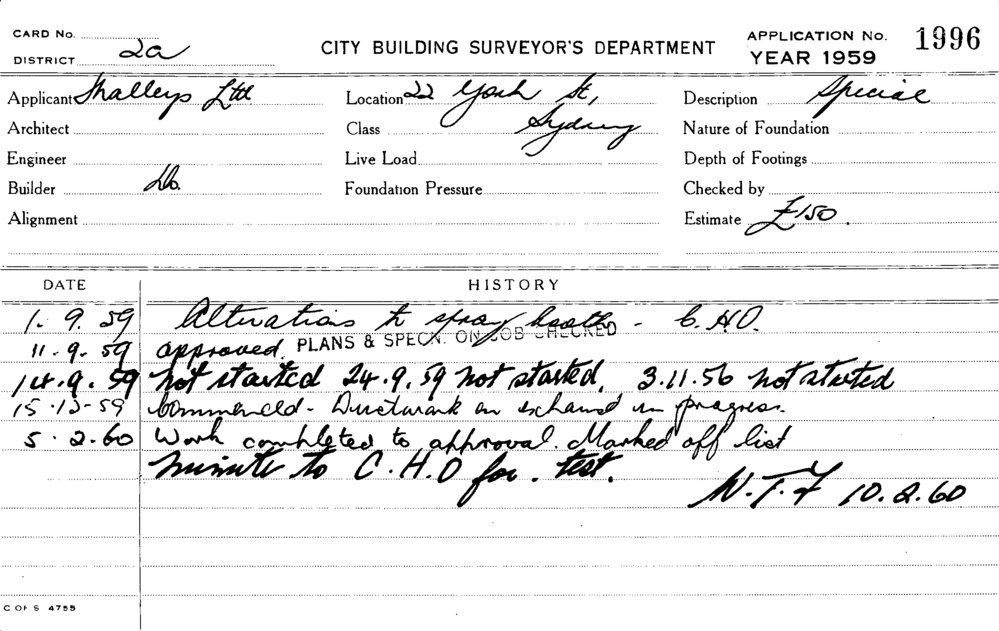 CARD No.
DISTRICT 2a
CITY BUILDING SURVEYOR'S DEPARTMENT
APPLICATION No. 1996
YEAR 1959
Applicant Shalleys Ltd
Location 22 York St,
Description Special
Architect
Class Sydney
Nature of Foundation
Engineer
Live Load
Depth of Footings
Builder Do.
Foundation Pressure
Checked by
Alignment
Estimate £150.
DATE HISTORY
1.9.59 Alterations to spray booth - C.H.O.
11.9.59 approved. PLANS & SPECN. ON JOB CHECKED
14.9.59 not started 24.9.59 not started. 3.11.56 not started
15.12-59 Commenced - Ductwork on exhaust in progress.
5.2.60 Work completed to approval. Marked off list
minute to C.H.O for. test.
N.T.F 10.2.60
C OF S 4755